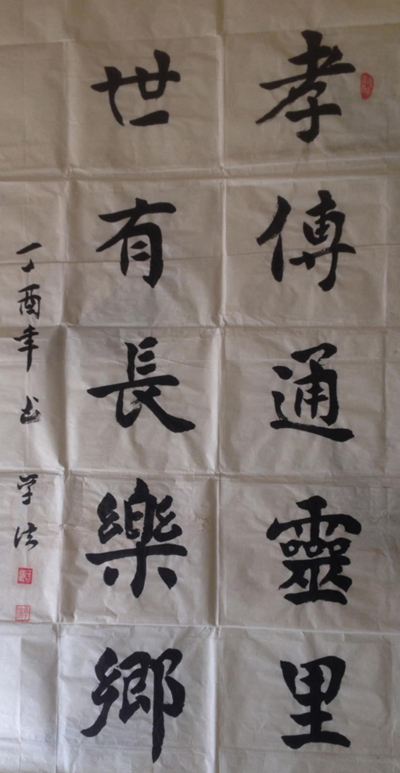 孝傳通靈里
世有長樂鄉
丁酉年书 学法